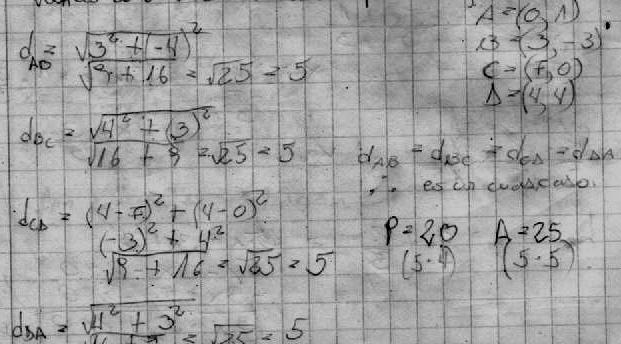 d_AB = √3² + (-4)²
√9 + 16 = √25 = 5
d_BC = √4² + (3)²
√16 + 9 = √25 = 5
d_CD = (4-7)² + (4-0)²
(-3)² + 4²
√9 + 16 = √25 = 5
d_DA = √4² + 3²
= √25 = 5
A = (0, 1)
B = (3, -3)
C = (7, 0)
D = (4, 4)
d_AB = d_BC = d_CD = d_DA
∴ es un cuadrado.
P = 20 A = 25
(5·4) (5·5)